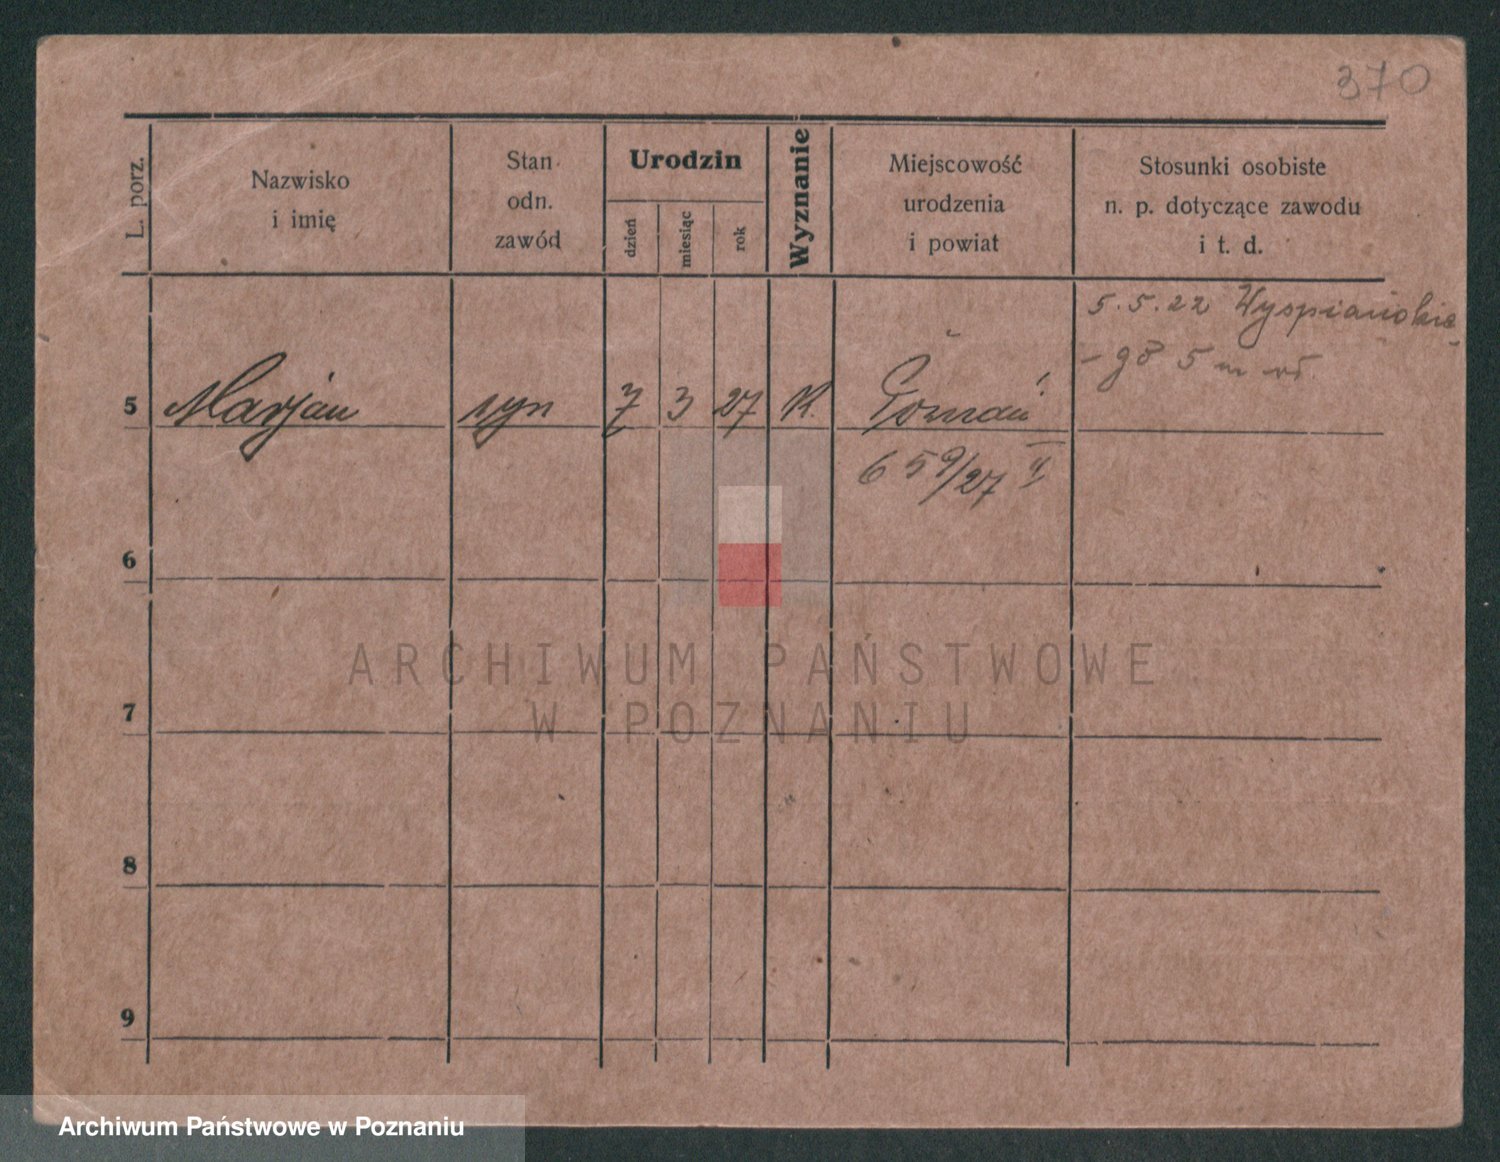 370
L. porz.
Nazwisko
i imię
Stan
odn.
zawód
Urodzin
dzień
miesiąc
rok
Wyznanie
Miejscowość
urodzenia
i powiat
Stosunki osobiste
n. p. dotyczące zawodu
i t. d.
5.5.22 Wyspiańskie-
- go 5
5 Marjan syn 7 3 27 K. Poznań
659/27 II
6
ARCHIWUM PAŃSTWOWE
W POZNANIU
7
8
9
Archiwum Państwowe w Poznaniu